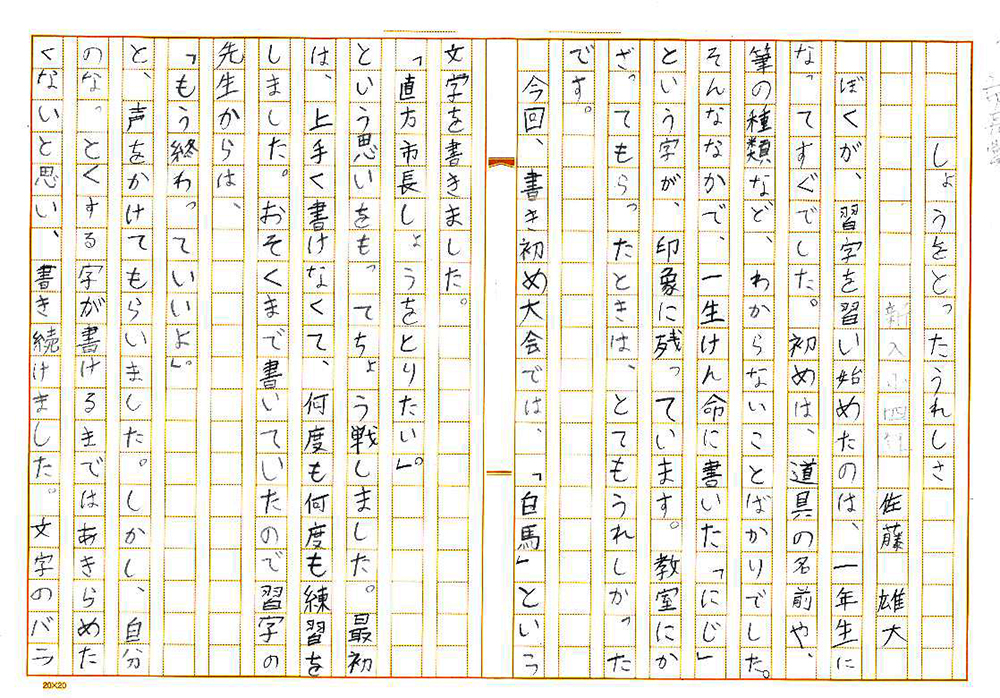 しょうをとったうれしさ
新入小四年
佐藤 雄大
ぼくが、習字を習い始めたのは、一年生に
なってすぐでした。初めは、道具の名前や、
筆の種類など、わからないことばかりでした。
そんななかで、一生けん命に書いた「にじ」
という字が、印象に残っています。教室にか
ざってもらったときは、とてもうれしかった
です。
今回、書き初め大会では、「白馬」という
文字を書きました。
「直方市長しょうをとりたい」。
という思いをもってちょう戦しました。最初
は、上手く書けなくて、何度も何度も練習を
しました。おそくまで書いていたので習字の
先生からは、
「もう終わっていいよ」。
と、声をかけてもらいました。しかし、自分
のなっとくする字が書けるまではあきらめた
くないと思い、書き続けました。文字のバラ
20×20